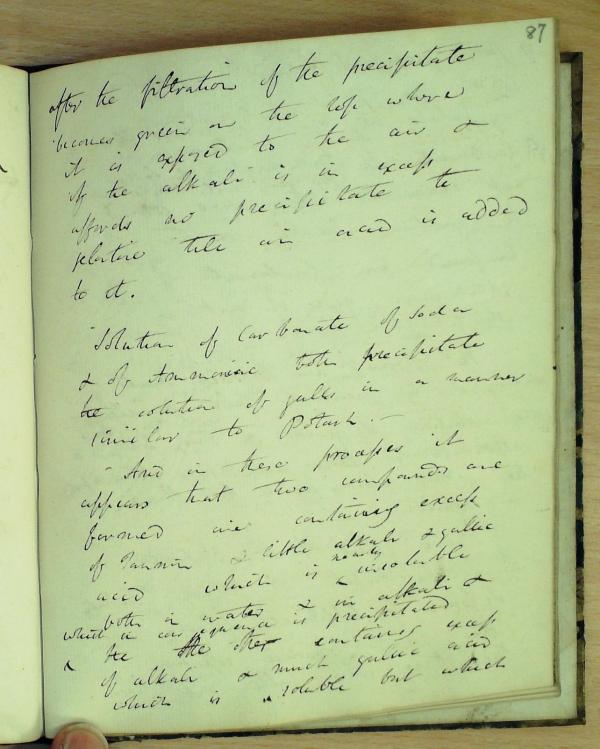 87
after the filtration of the precipitate
becomes green on the top where
it is exposed to the air &
if the alkali is in excess
affords no precipitate to
gelatine till an acid is added
to it.
Solution of Carbonate of Soda
& of Ammoniac both precipitate
the solution of galls in a manner
similar to Potash. —
And in these processes it
appears that two compounds are
formed one containing excess
of Tannin & little alkali & gallic
acid which is nearly insoluble
both in water & in alkali &
which in consequence is precipitated
& the other containing excess
of alkali & much gallic acid
which is soluble but which